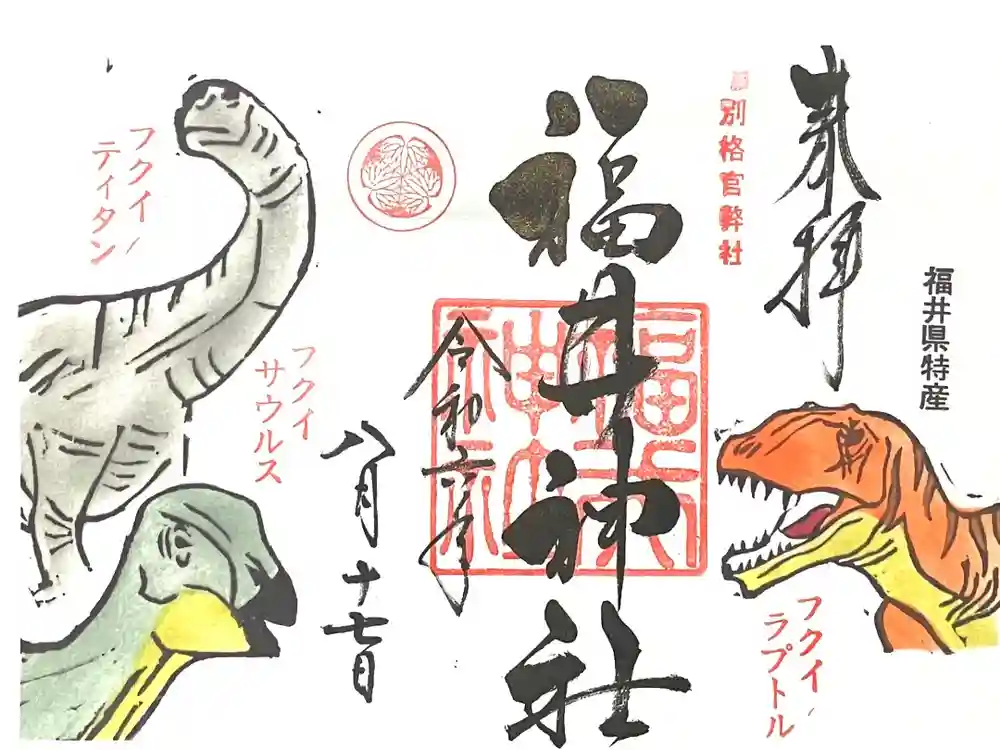 奉拝
福井県特産
フクイ
ラプトル
別格官幣社
福井神社
福井神社
令和六年
八月十七日
フクイ
サウルス
フクイ
ティタン